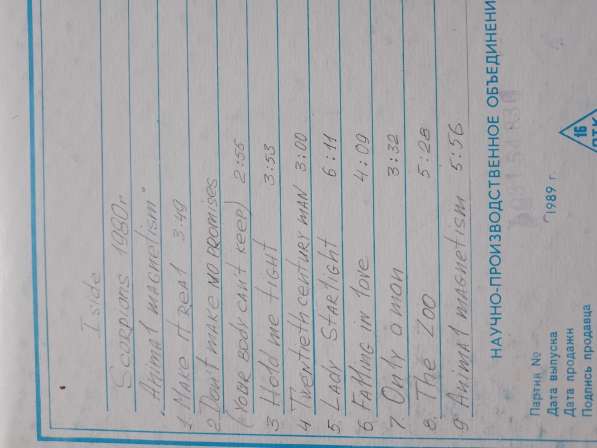 I side
Scorpions 1980г
„Animal magnetism"
1. Make it Real 3:49
2. Don't make NO PROMISES
(YOOR BODY CAN'T KEEP) 2:55
3 Hold me tight 3:53
4. Twentieth century MAN 3:00
5. Lady STARlight 6:11
6. Falling in love 4:09
7. Only a man 3:32
8. The ZOO 5:28
9 Animal magnetism 5:56
НАУЧНО-ПРОИЗВОДСТВЕННОЕ ОБЪЕДИНЕНИ
Партия №
Дата выпуска 1989 г.
Дата продажи
Подпись продавца
16
ОТК